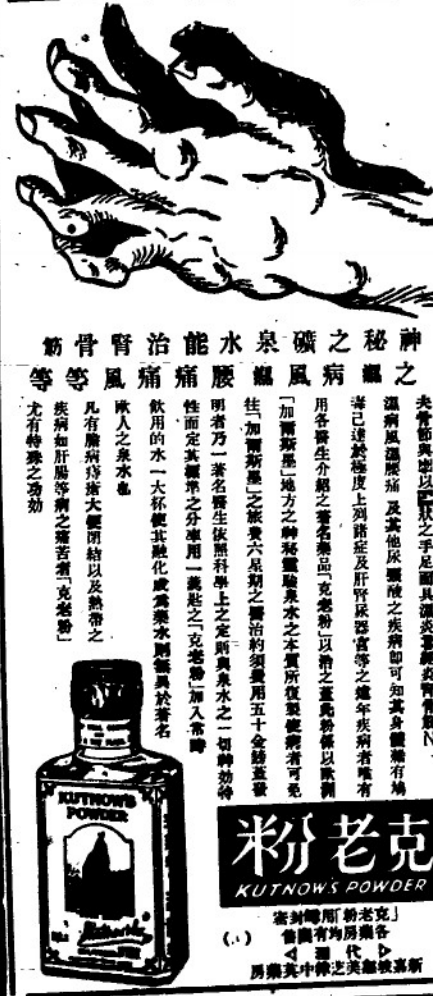 神秘之礦泉水能治腎骨筋
之濕病風濕腰痛痛風等等
夫骨節與 狀之手足面具濕炎 經炎腎骨筋
濕病風濕腰痛及其他尿 酸之疾病即可知其身體 有鳩
毒已達於極度上列諸症及肝腎尿器 等之遠年疾病者唯有
用各醫生介紹之著名藥品「克老粉」以治之蓋此粉係以歐洲
「加爾斯墨」地方之神秘靈驗泉水之本質所復製使病者可免
往「加爾斯墨」之旅費六星期之醫治約須費用五十金鎊蓋發
明者乃一著名醫生依照科學上之定則與泉水之一切神効特
性而定其標準之分率用一羹匙之「克老粉」加入常時
飲用的水一大杯使其融化成為藥水則無異於著名
歐人之泉水也
凡有膽病痔瘡大便閉結以及熱帶之
疾病如肝腸等病之痛苦者「克老粉」
尤有特殊之功効
克老粉
KUTNOW'S POWDER
「克老粉」用 封密
各藥房均有 售
代理
新嘉坡 美芝律中英藥房
KUTNOW'S
POWDER